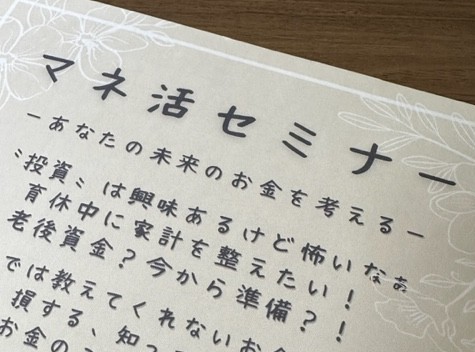 マネ活セミナー
ーあなたの未来のお金を考えるー
〝投資〟は興味あるけど怖いなぁ
育休中に家計を整えたい!
老後資金?今から準備?!
では教えてくれないお
損する、知っ
お金の